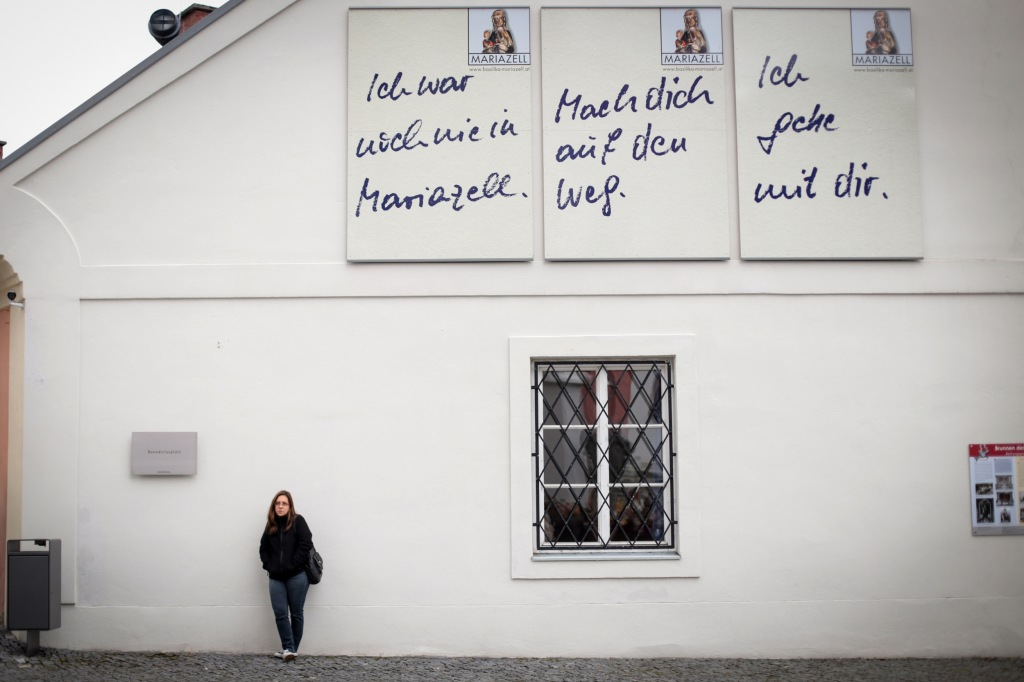 MARIAZELL
www.basilika-mariazell.at
Ich war
noch nie in
Mariazell.
MARIAZELL
www.basilika-mariazell.at
Mach dich
auf den
Weg.
MARIAZELL
www.basilika-mariazell.at
Ich
gehe
mit dir.
Benedictusplatz
Brunnen